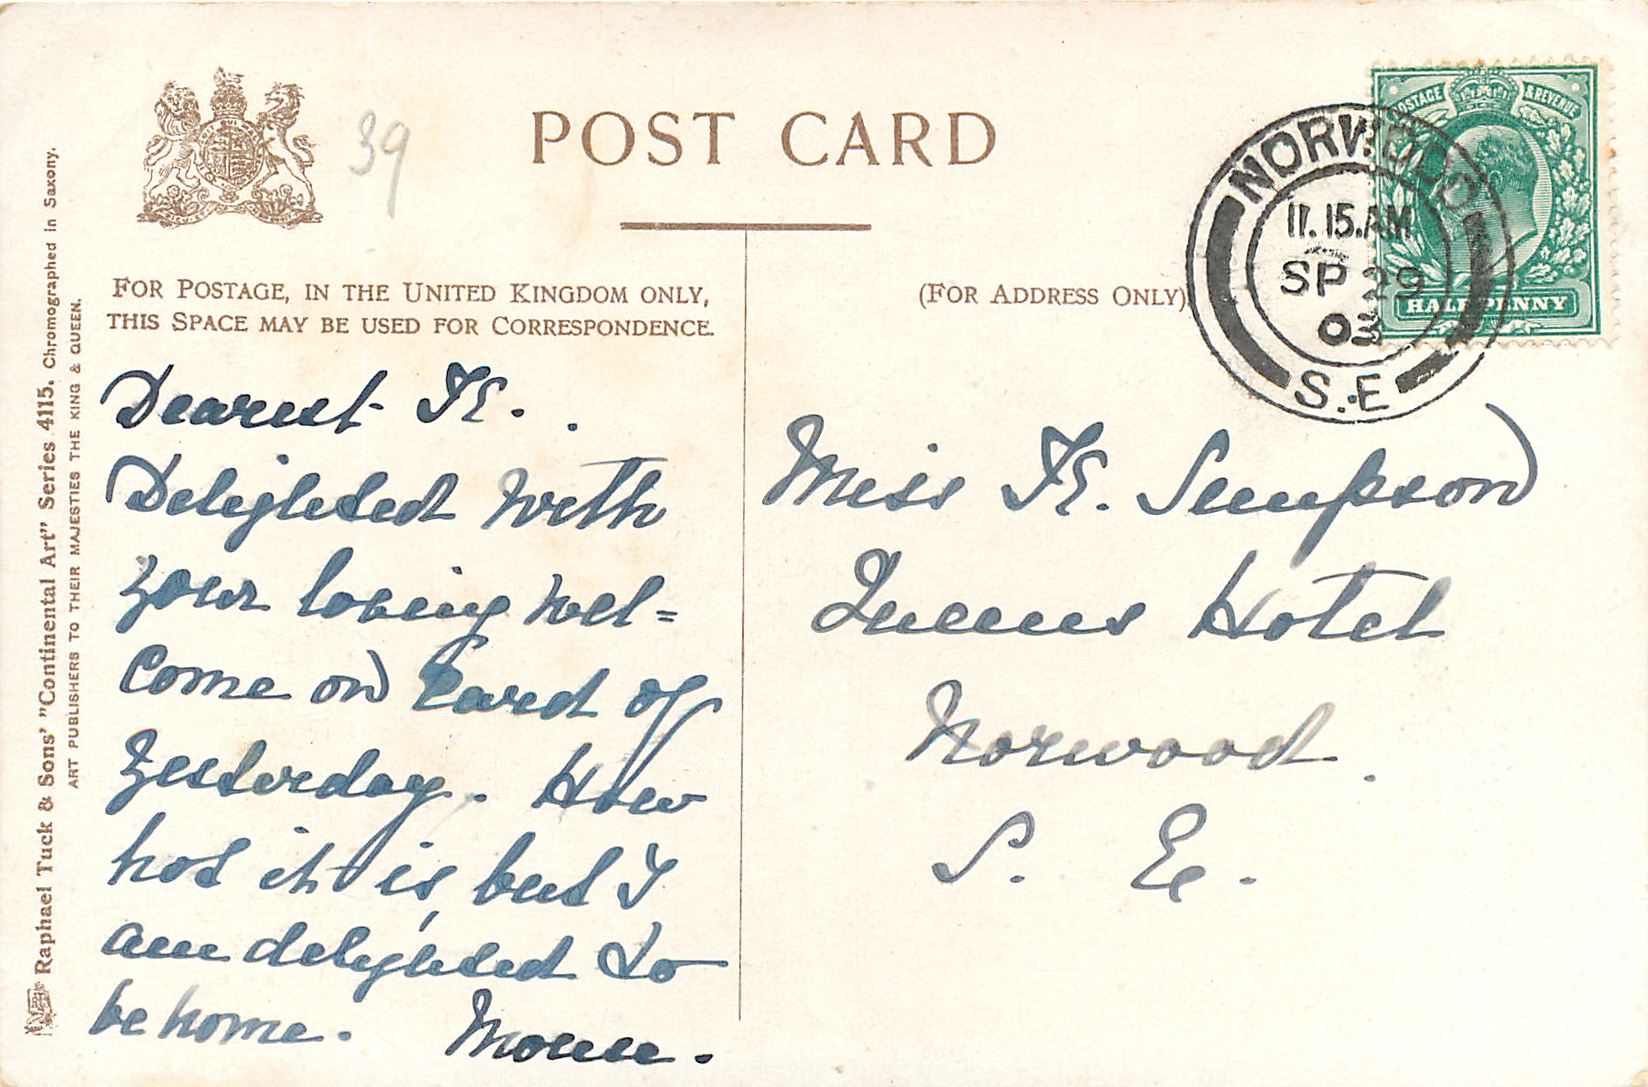 POST CARD
39
FOR POSTAGE, IN THE UNITED KINGDOM ONLY,
THIS SPACE MAY BE USED FOR CORRESPONDENCE.
(FOR ADDRESS ONLY)
POSTAGE & REVENUE
HALFPENNY
NORWOOD
11.15.AM
SP 29
03
S.E
Dearest K.
Delighted with
your loving wel=
come on Card of
yesterday. How
hot it is but I
am delighted to
be home.
Miss K. Simpson
Queens Hotel
Norwood.
S. E.
Raphael Tuck & Sons' "Continental Art" Series 4115. Chromographed in Saxony.
ART PUBLISHERS TO THEIR MAJESTIES THE KING & QUEEN.